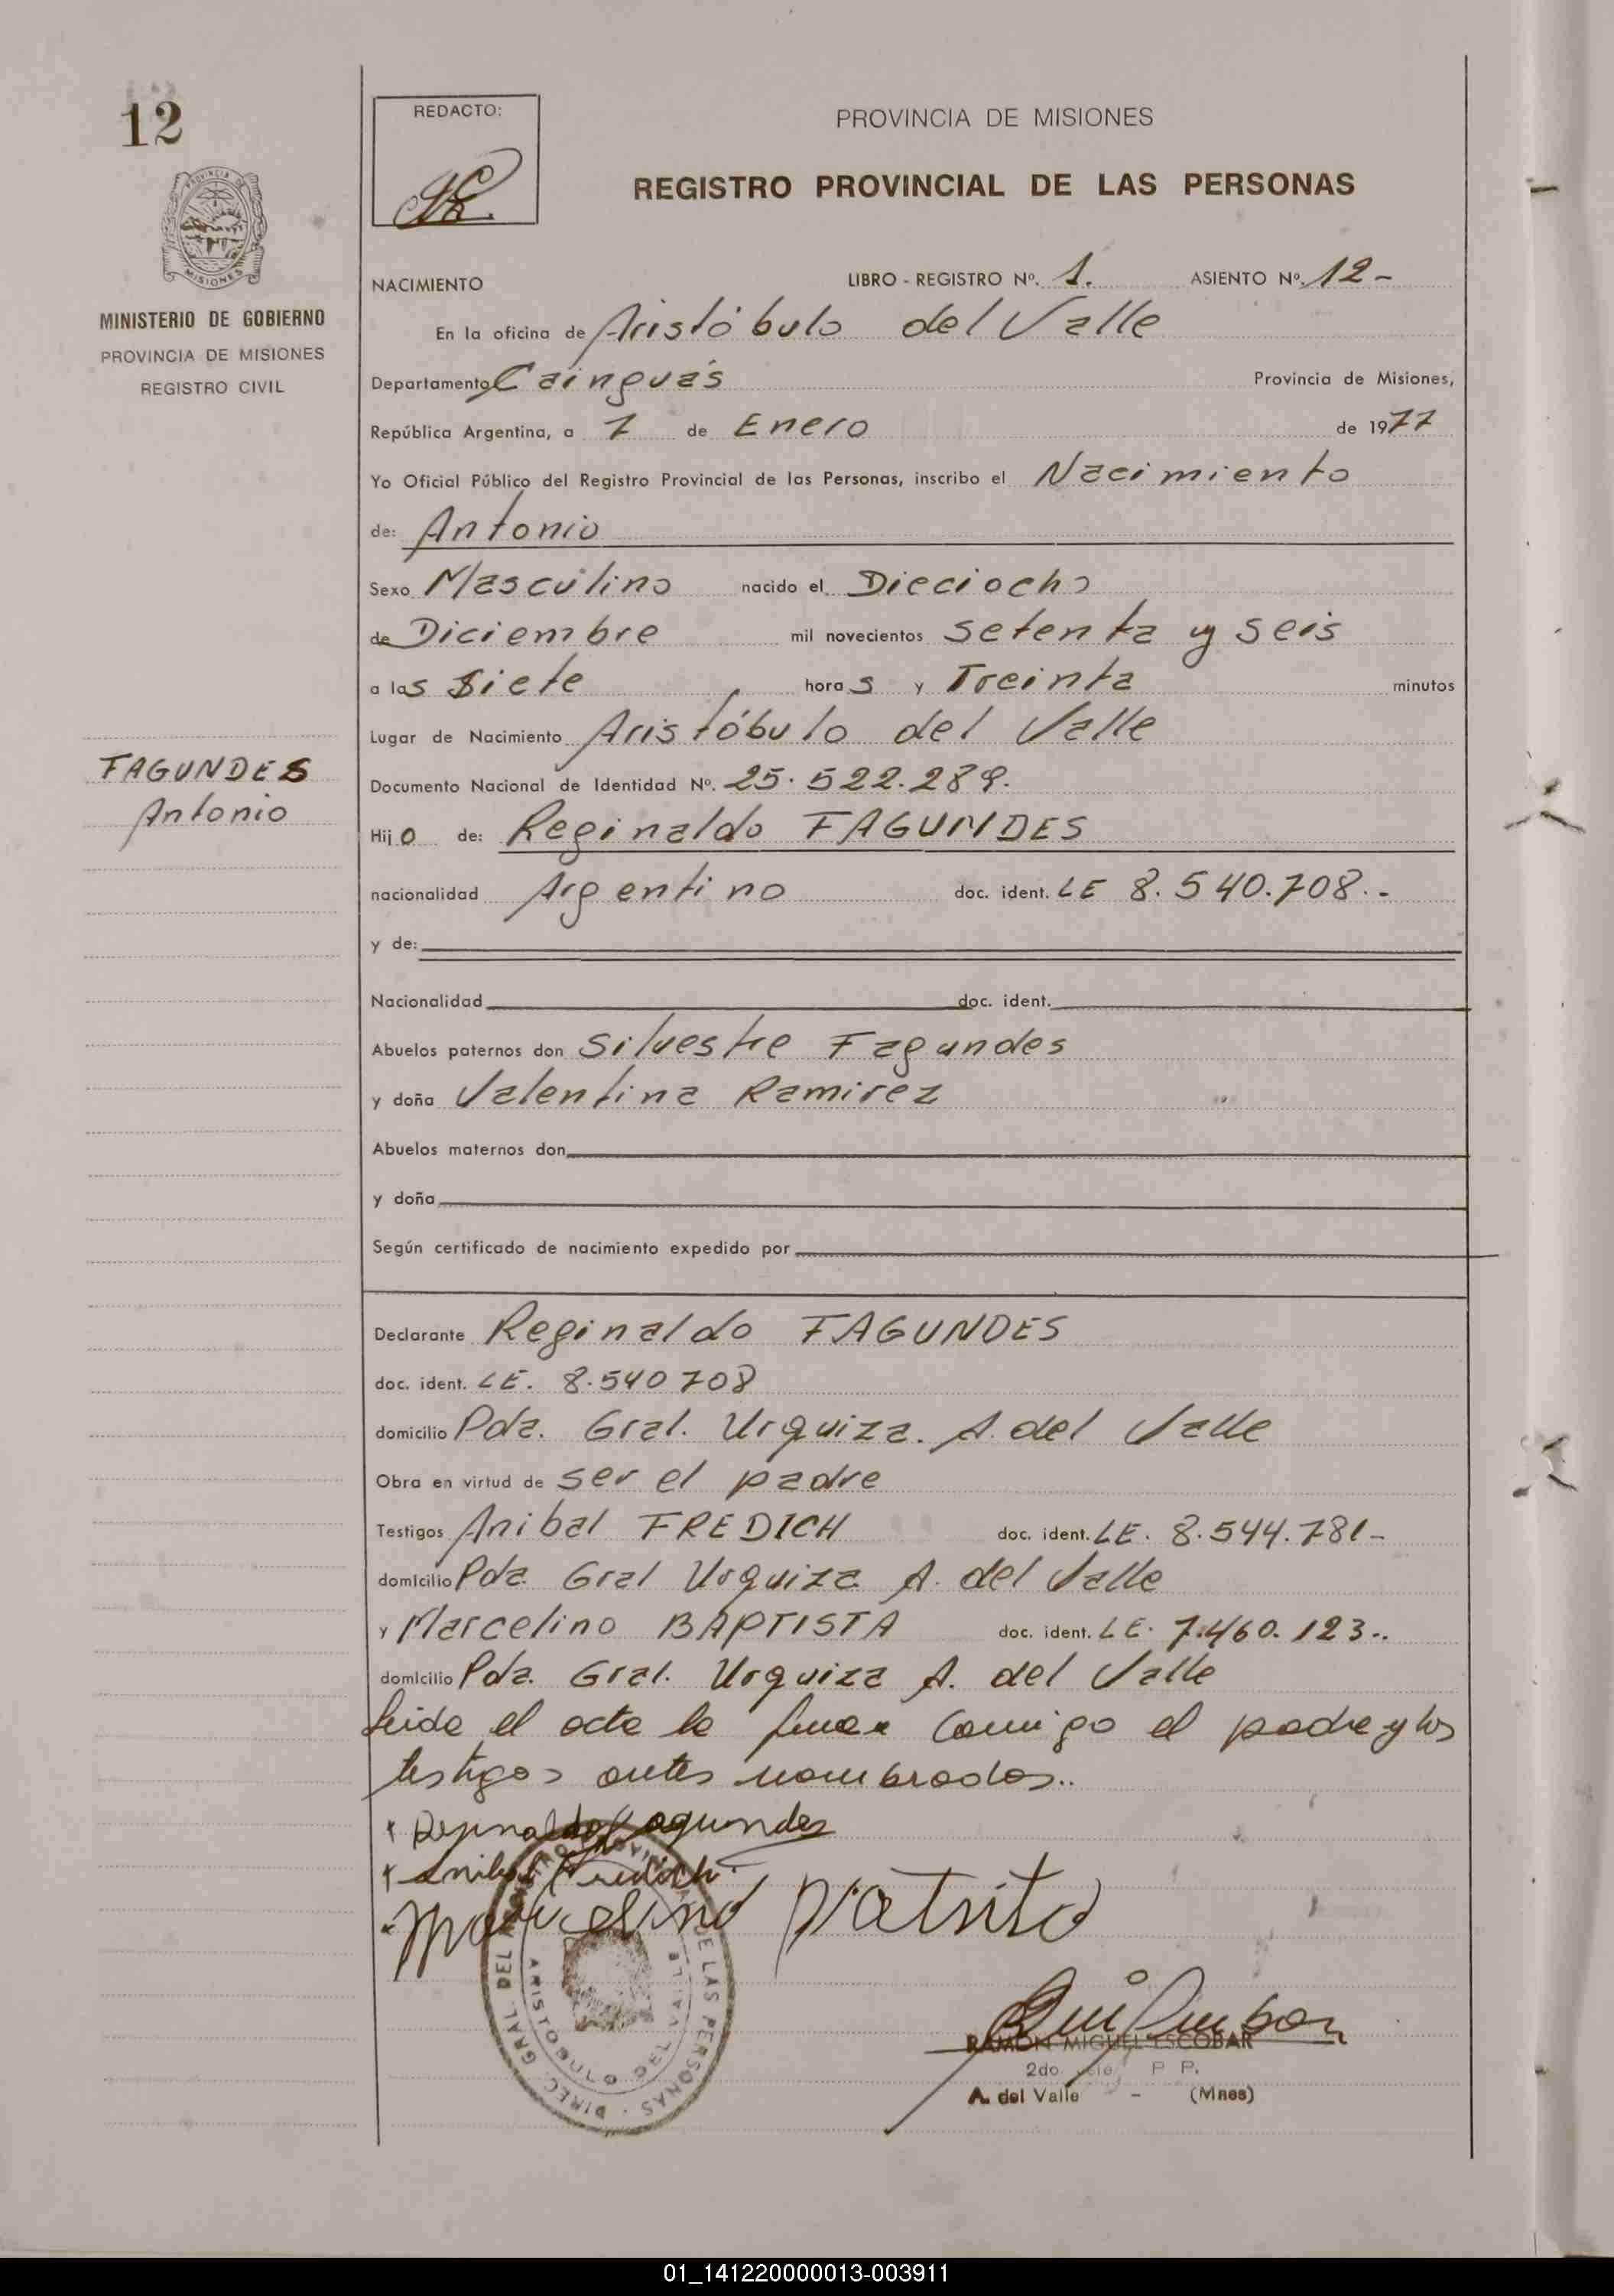 12
REDACTO:
PROVINCIA DE MISIONES
REGISTRO PROVINCIAL DE LAS PERSONAS
MISIONES
MINISTERIO DE GOBIERNO
PROVINCIA DE MISIONES
REGISTRO CIVIL
NACIMIENTO LIBRO - REGISTRO Nº. 1. ASIENTO Nº. 12-
En la oficina de Aristóbulo del Valle
Departamento Cainguás Provincia de Misiones,
República Argentina, a 7 de Enero de 1977
Yo Oficial Público del Registro Provincial de las Personas, inscribo el Nacimiento
de: Antonio
Sexo Masculino nacido el Dieciocho
de Diciembre mil novecientos setenta y seis
a las Siete horas y Treinta minutos
Lugar de Nacimiento Aristóbulo del Valle
FAGUNDES
Antonio
Documento Nacional de Identidad Nº. 25.522.289.
Hijo de: Reginaldo FAGUNDES
nacionalidad Argentino doc. ident. LE 8.540.708.-
y de:
Nacionalidad doc. ident.
Abuelos paternos don Silvestre Fagundes
y doña Valentina Ramirez
Abuelos maternos don
y doña
Según certificado de nacimiento expedido por
Declarante Reginaldo FAGUNDES
doc. ident. LE. 8.540 708
domicilio Pda. Gral. Urquiza. A. del Valle
Obra en virtud de ser el padre
Testigos Anibal FREDICH doc. ident. LE. 8.544.781-
domicilio Pda Gral Urquiza A. del Valle
y Marcelino BAPTISTA doc. ident. LE. 7.460.123..
domicilio Pda. Gral. Urquiza A. del Valle
Leida el acta la firman Conmigo el padre y los
testigos antes nombrados..
Reginaldo Fagundes
Anibal Fredich
Marcelino
DIREC. GRAL. DEL REGISTRO PROVINCIAL DE LAS PERSONAS
ARISTOBULO DEL VALLE
RAMON MIGUEL ESCOBAR
2do P P.
A. del Valle - (Mnes)
01_141220000013-003911